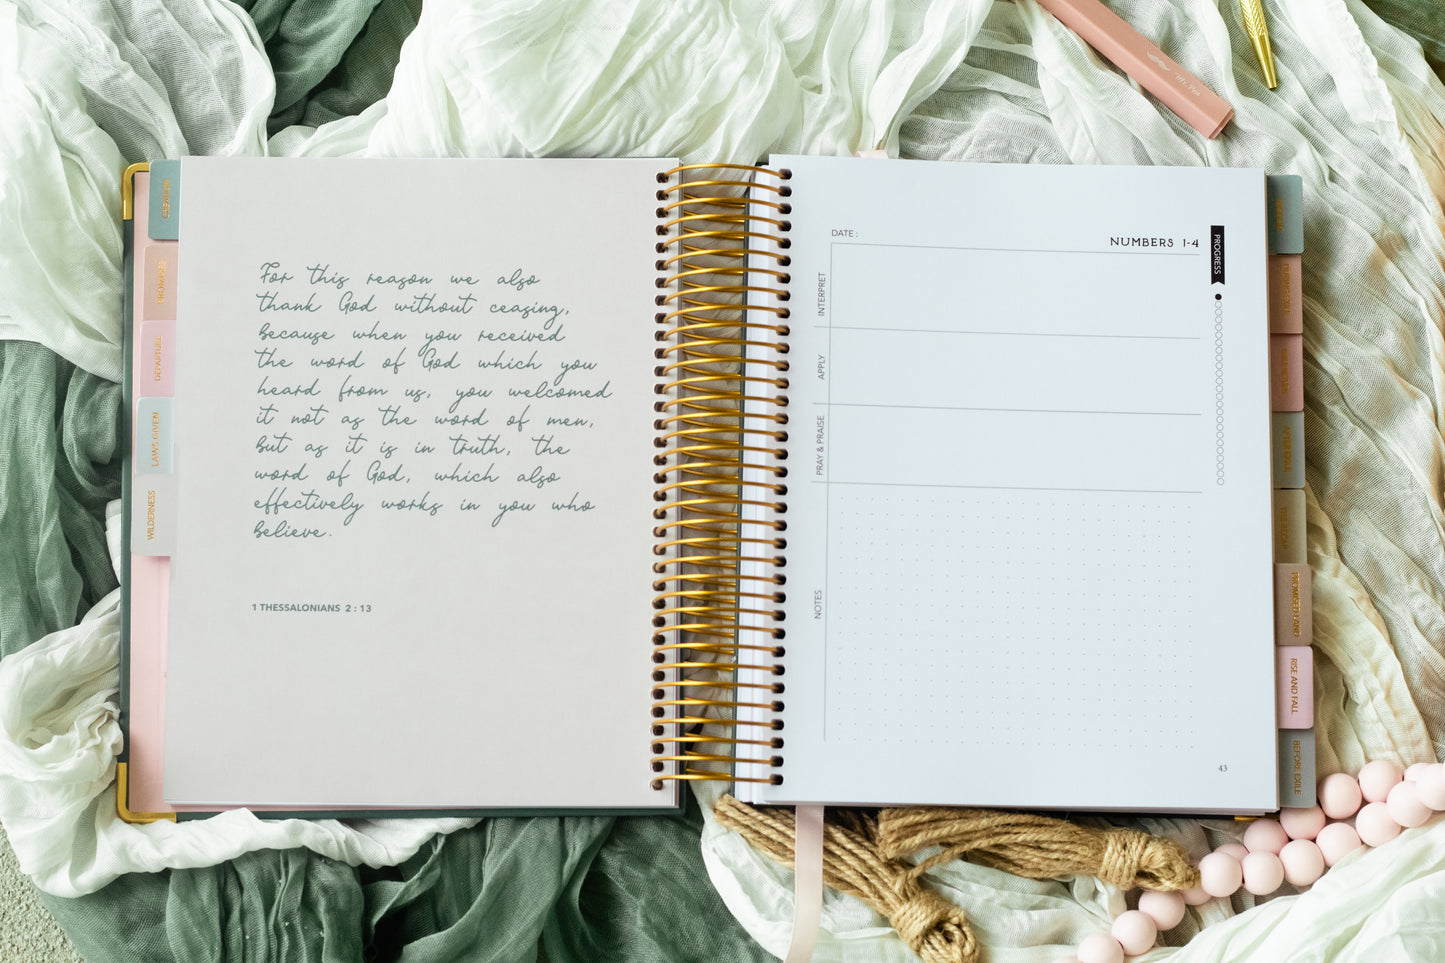 CREATION
PROMISE
DEPARTURE
LAWS GIVEN
WILDERNESS
For this reason we also
thank God without ceasing,
because when you received
the word of God which you
heard from us, you welcomed
it not as the word of men,
but as it is in truth, the
word of God, which also
effectively works in you who
believe.
1 THESSALONIANS 2:13
DATE :
NUMBERS 1-4
PROGRESS
INTERPRET
APPLY
PRAY & PRAISE
NOTES
43
PROMISED LAND
RISE AND FALL
BEFORE EXILE